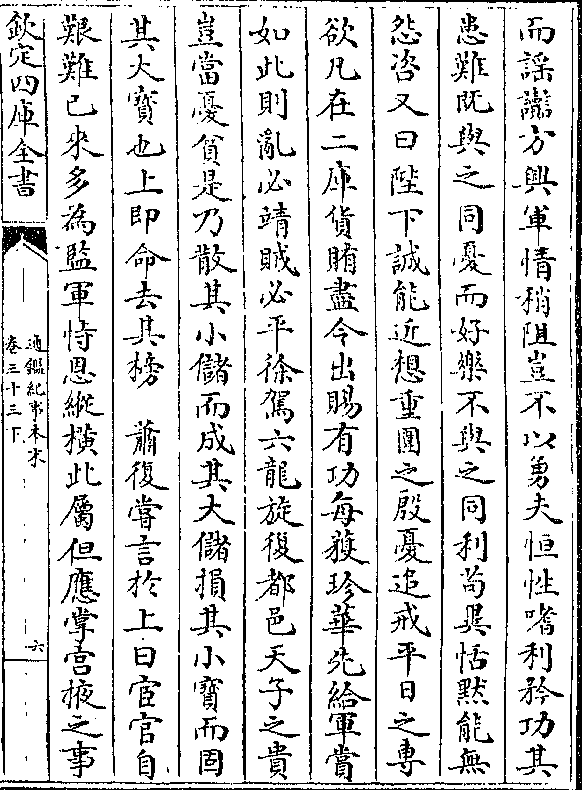 而謡讟方興軍情稍阻豈不以勇夫恒性嗜利矜功其
患難既與之同憂而好樂不與之同利苟異恬黙能無
怨咨又曰陛下誠能近想重圍之殷憂追戒平日之專
欲凡在二庫貨賄盡令出賜有功每穫珍華先給軍賞
如此則亂必靖賊必平徐駕六龍旋復都邑天子之貴
豈當憂貧是乃散其小儲而成其大儲損其小寳而固
其大寳也上即命去其榜 蕭復嘗言於上曰宦官自
艱難已來多為監軍恃恩縱横此屬但應掌宫掖之事
欽定四庫全書
通鑑紀事本末
卷三十三下
六